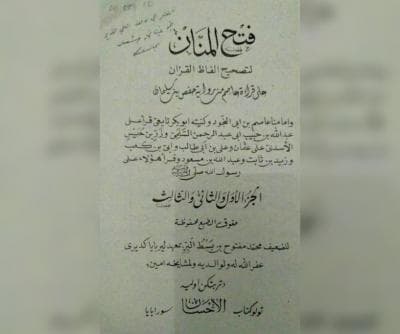 فتح المنان
لتصحيح الفاظ القرأن
على قراءة عاصم من رواية حفص بن سليمان
وامامنا عاصم بن ابى النجود وكنيته ابو بكر تابعي قرأ على
عبد الله بن حبيب ابى عبد الرحمن السلمي وزر بن حبيش
الأسدى على عثمان وعلى بن ابى طالب وابى بن كعب
وزيد بن ثابت وعبد الله بن مسعود وقرأ هؤلاء على
رسول الله صلى
الجزء الأول والثانى والثالث
حقوق الطبع محفوظة
للضعيف محمد مفتوح بن بسط البر بمعهد ليربايا كديرى
غفر الله له ولوالديه ولمشايخه امين
دتربتكن اوليه
توكو كتاب الإحسان سورابايا